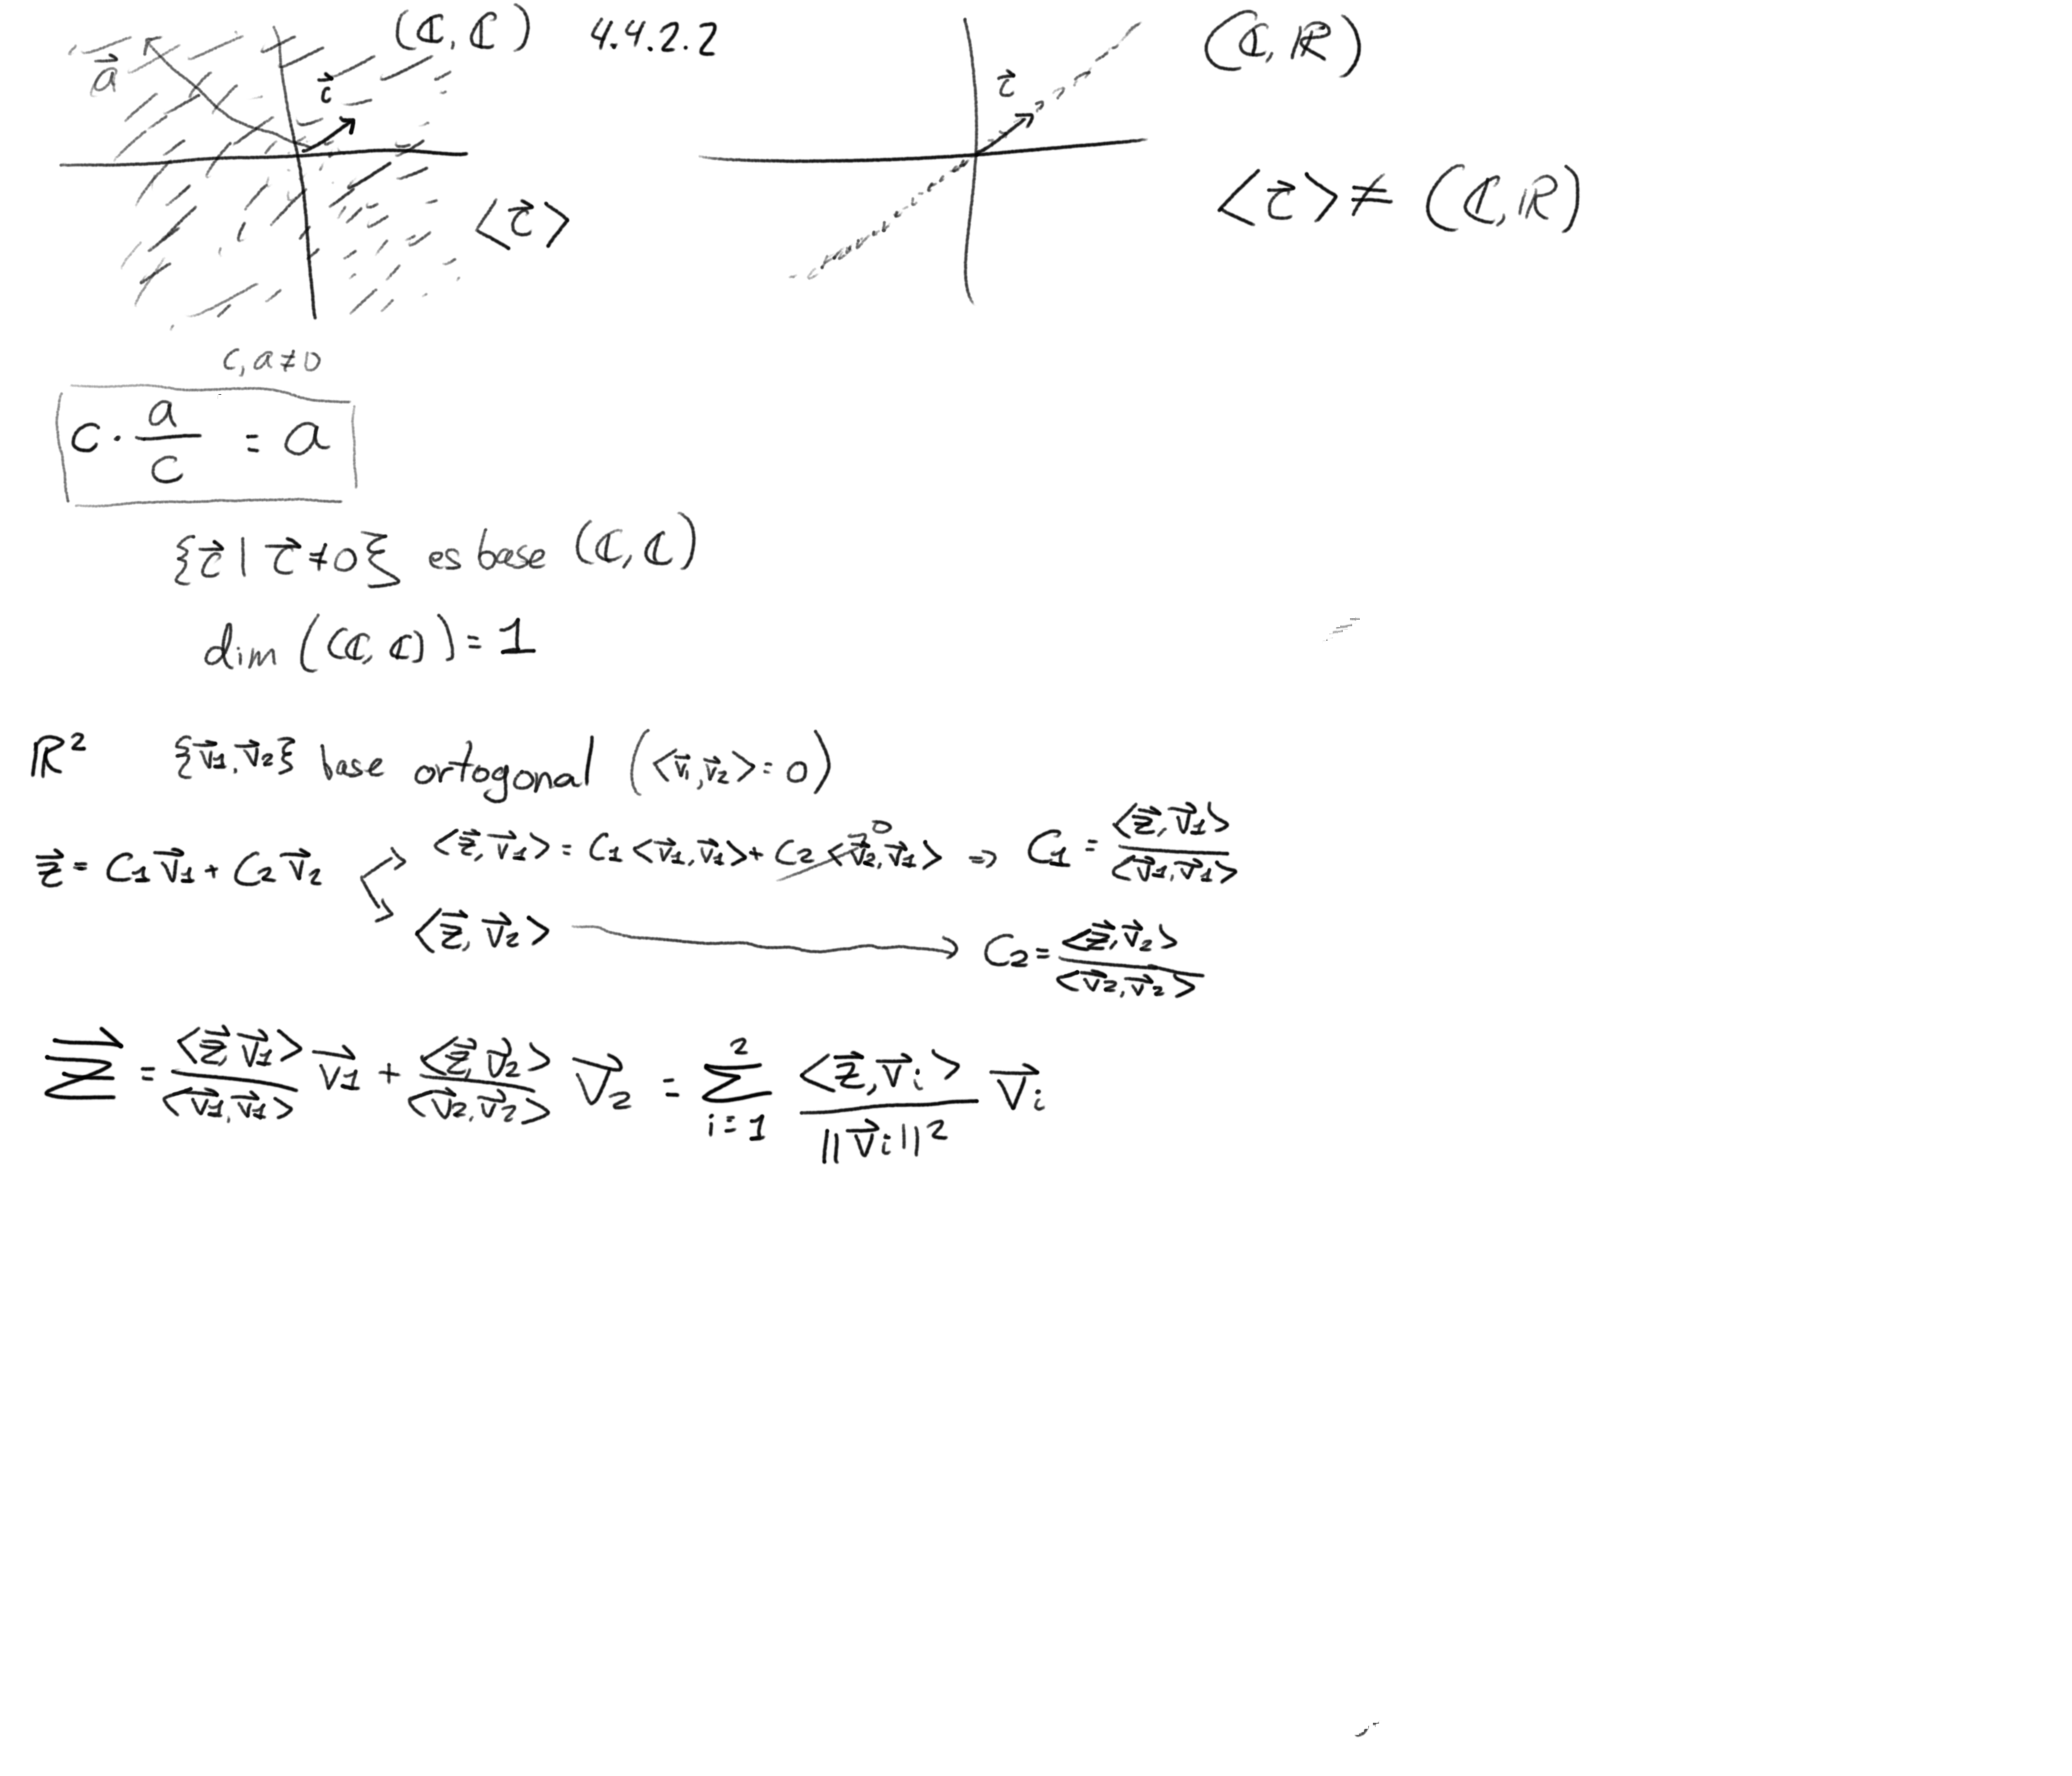 (ℂ, ℂ) 4.4.2.2
a⃗
c⃗
<c⃗>
(ℂ, ℝ)
c⃗
<c⃗> ≠ (ℂ, ℝ)
c, a ≠ 0
c · a/c = a
{c⃗ | c⃗ ≠ 0} es base (ℂ, ℂ)
dim ((ℂ, ℂ)) = 1
ℝ² {v⃗1, v⃗2} base ortogonal (<v⃗1, v⃗2> = 0)
z⃗ = C1 v⃗1 + C2 v⃗2
<z⃗, v⃗1> = C1 <v⃗1, v⃗1> + C2 <v⃗2, v⃗1> 0 ⇒ C1 = <z⃗, v⃗1> / <v⃗1, v⃗1>
<z⃗, v⃗2> → C2 = <z⃗, v⃗2> / <v⃗2, v⃗2>
z⃗ = <z⃗, v⃗1> / <v⃗1, v⃗1> v⃗1 + <z⃗, v⃗2> / <v⃗2, v⃗2> v⃗2 = Σ i=1 2 <z⃗, v⃗i> / ||v⃗i||² v⃗i